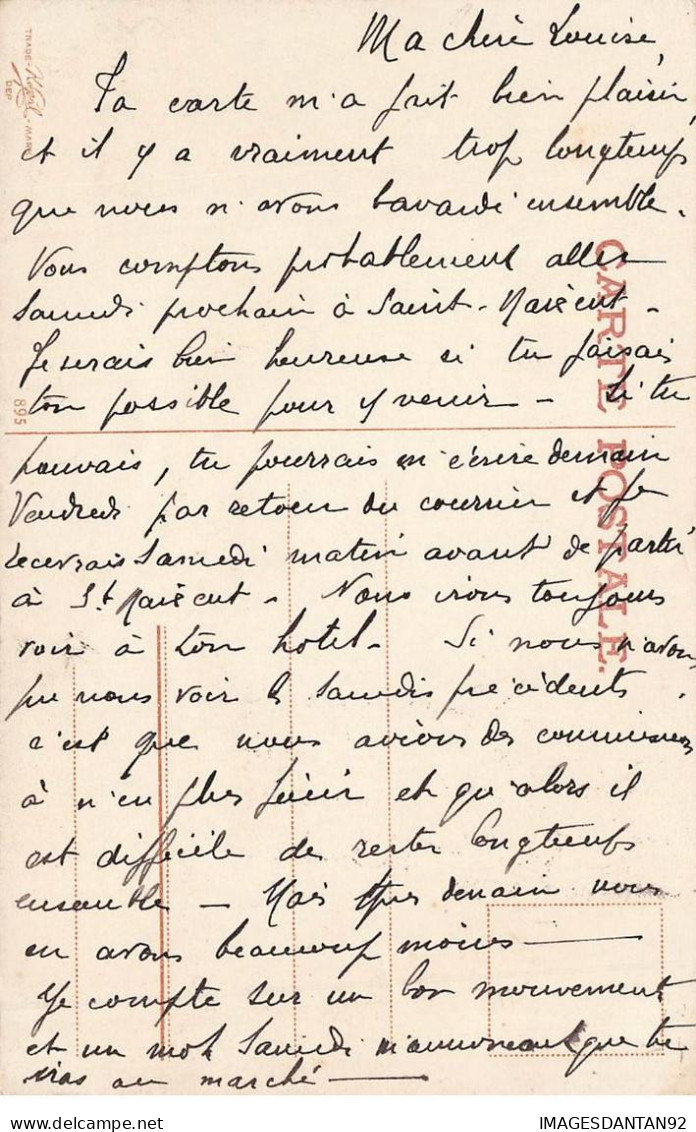 Ma chère Louise,
Ta carte m'a fait bien plaisir,
et il y a vraiment trop longtemps
que nous n'avons bavardé ensemble.
Nous comptons probablement aller
Samedi prochain à Saint-Maixent -
Je serais bien heureuse si tu faisais
ton possible pour y venir - Si tu
pouvais, tu pourrais m'écrire demain
Vendredi par retour du courrier et je
recevrais Samedi matin avant de partir
à St Maixent - Nous irons toujours
voir à ton hotel - Si nous n'avons
pu nous voir les samedis précédents
c'est que nous avions des commissions
à n'en plus finir et qu'alors il
est difficile de rester longtemps
ensemble - Mais demain nous
en avons beaucoup moins -
Je compte sur un bon mouvement
et un mot Samedi m'annonçant que tu
iras au marché -
CARTE POSTALE.
TRADE- MARK
DEP
895
IMAGESDANTAN92